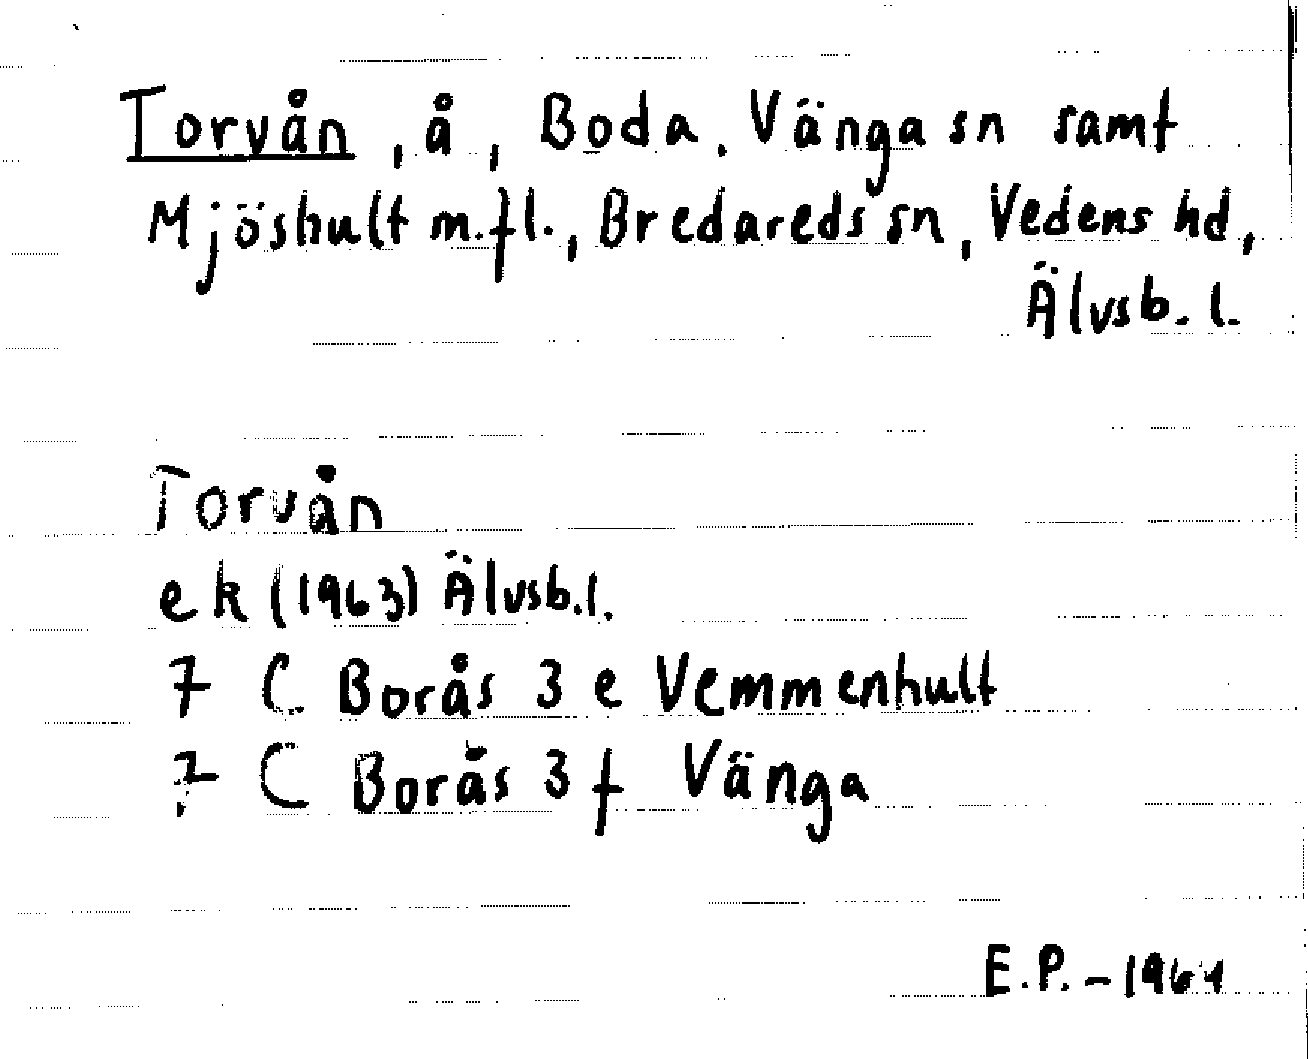 Torvån, å, Boda, Vänga sn samt
Mjöshult m.fl., Bredareds sn, Vedens hd,
Älvsb. l.
Torvån
ek (1963) Älvsb.l.
7 C Borås 3 e Vemmenhult
7 C Borås 3 f Vänga
E.P. - 1964